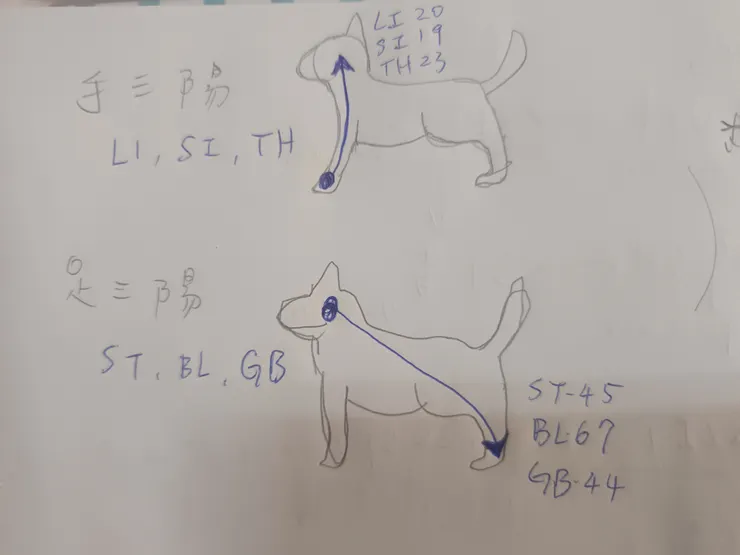 手三陽
LI, SI, TH
LI 20
SI 19
TH 23
足三陽
ST, BL, GB
ST-45
BL-67
GB-44